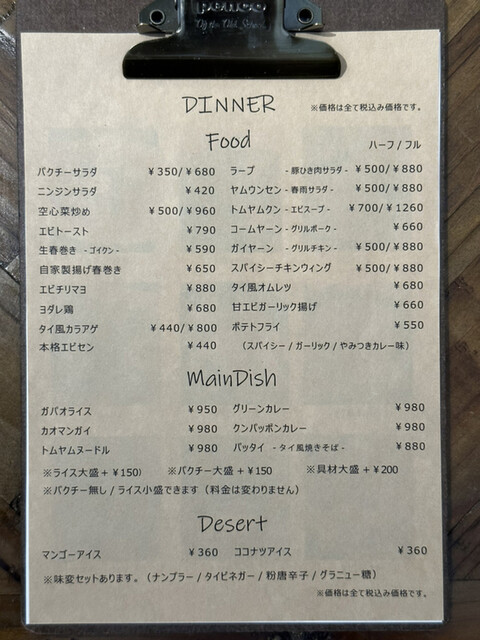 DINNER ※価格は全て税込み価格です。
Food ハーフ / フル
パクチーサラダ ¥350/¥680 ラープ - 豚ひき肉サラダ - ¥500/¥880
ニンジンサラダ ¥420 ヤムウンセン - 春雨サラダ - ¥500/¥880
空心菜炒め ¥500/¥960 トムヤムクン - エビスープ - ¥700/¥1260
エビトースト ¥790 コームヤーン - グリルポーク - ¥660
生春巻き - ゴイクン - ¥590 ガイヤーン - グリルチキン - ¥500/¥880
自家製揚げ春巻き ¥650 スパイシーチキンウィング ¥500/¥880
エビチリマヨ ¥880 タイ風オムレツ ¥680
ヨダレ鶏 ¥680 甘エビガーリック揚げ ¥660
タイ風カラアゲ ¥440/¥800 ポテトフライ ¥550
本格エビセン ¥440 (スパイシー / ガーリック / やみつきカレー味)
MainDish
ガパオライス ¥950 グリーンカレー ¥980
カオマンガイ ¥980 クンパッポンカレー ¥980
トムヤムヌードル ¥980 パッタイ - タイ風焼きそば - ¥880
※ライス大盛 + ¥150) ※パクチー大盛 + ¥150 ※具材大盛 + ¥200
※パクチー無し / ライス小盛できます (料金は変わりません)
Desert
マンゴーアイス ¥360 ココナツアイス ¥360
※味変セットあります。(ナンプラー / タイビネガー / 粉唐辛子 / グラニュー糖)
※価格は全て税込み価格です。